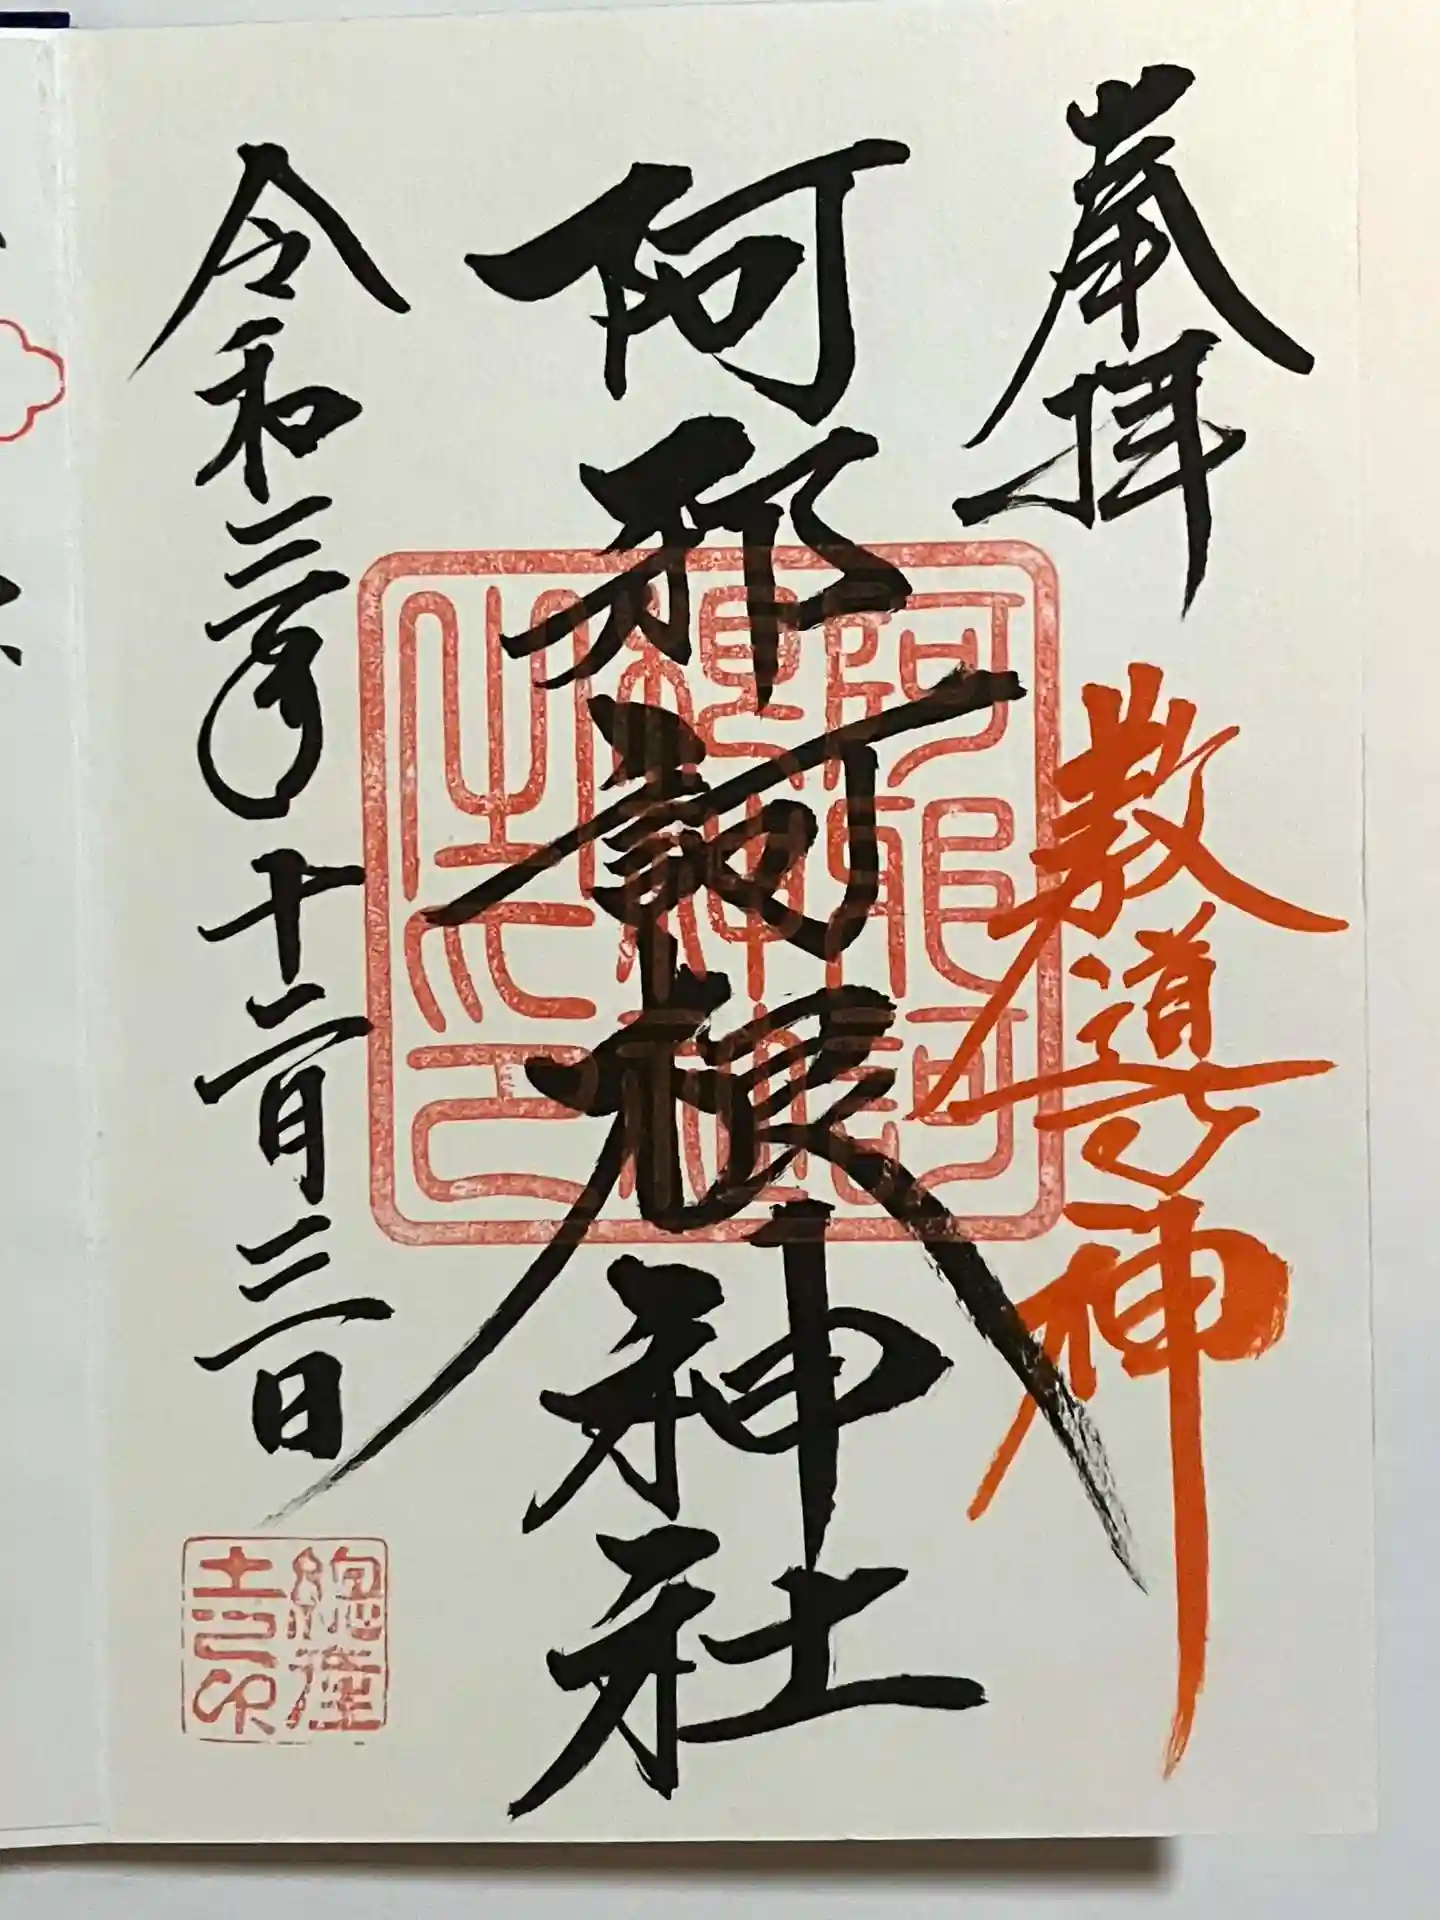 奉拝
教導神
阿邪訶根神社
令和三年十二月三日
阿邪訶
根神社
之印
總産
土之印